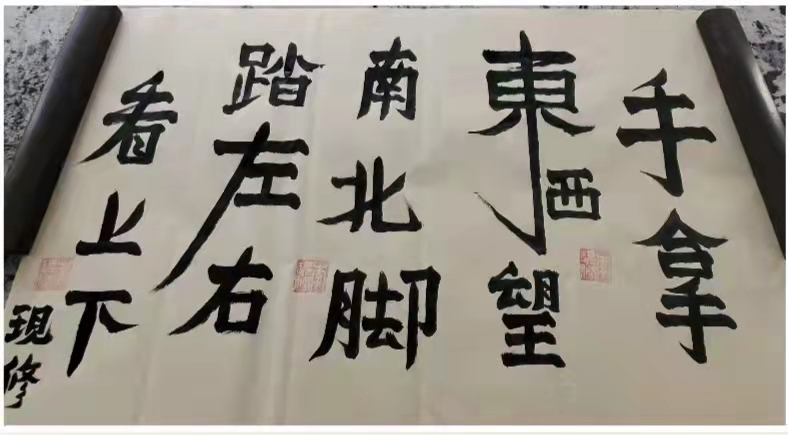 手拿
東西望
南北脚
踏左右
看上下
現修